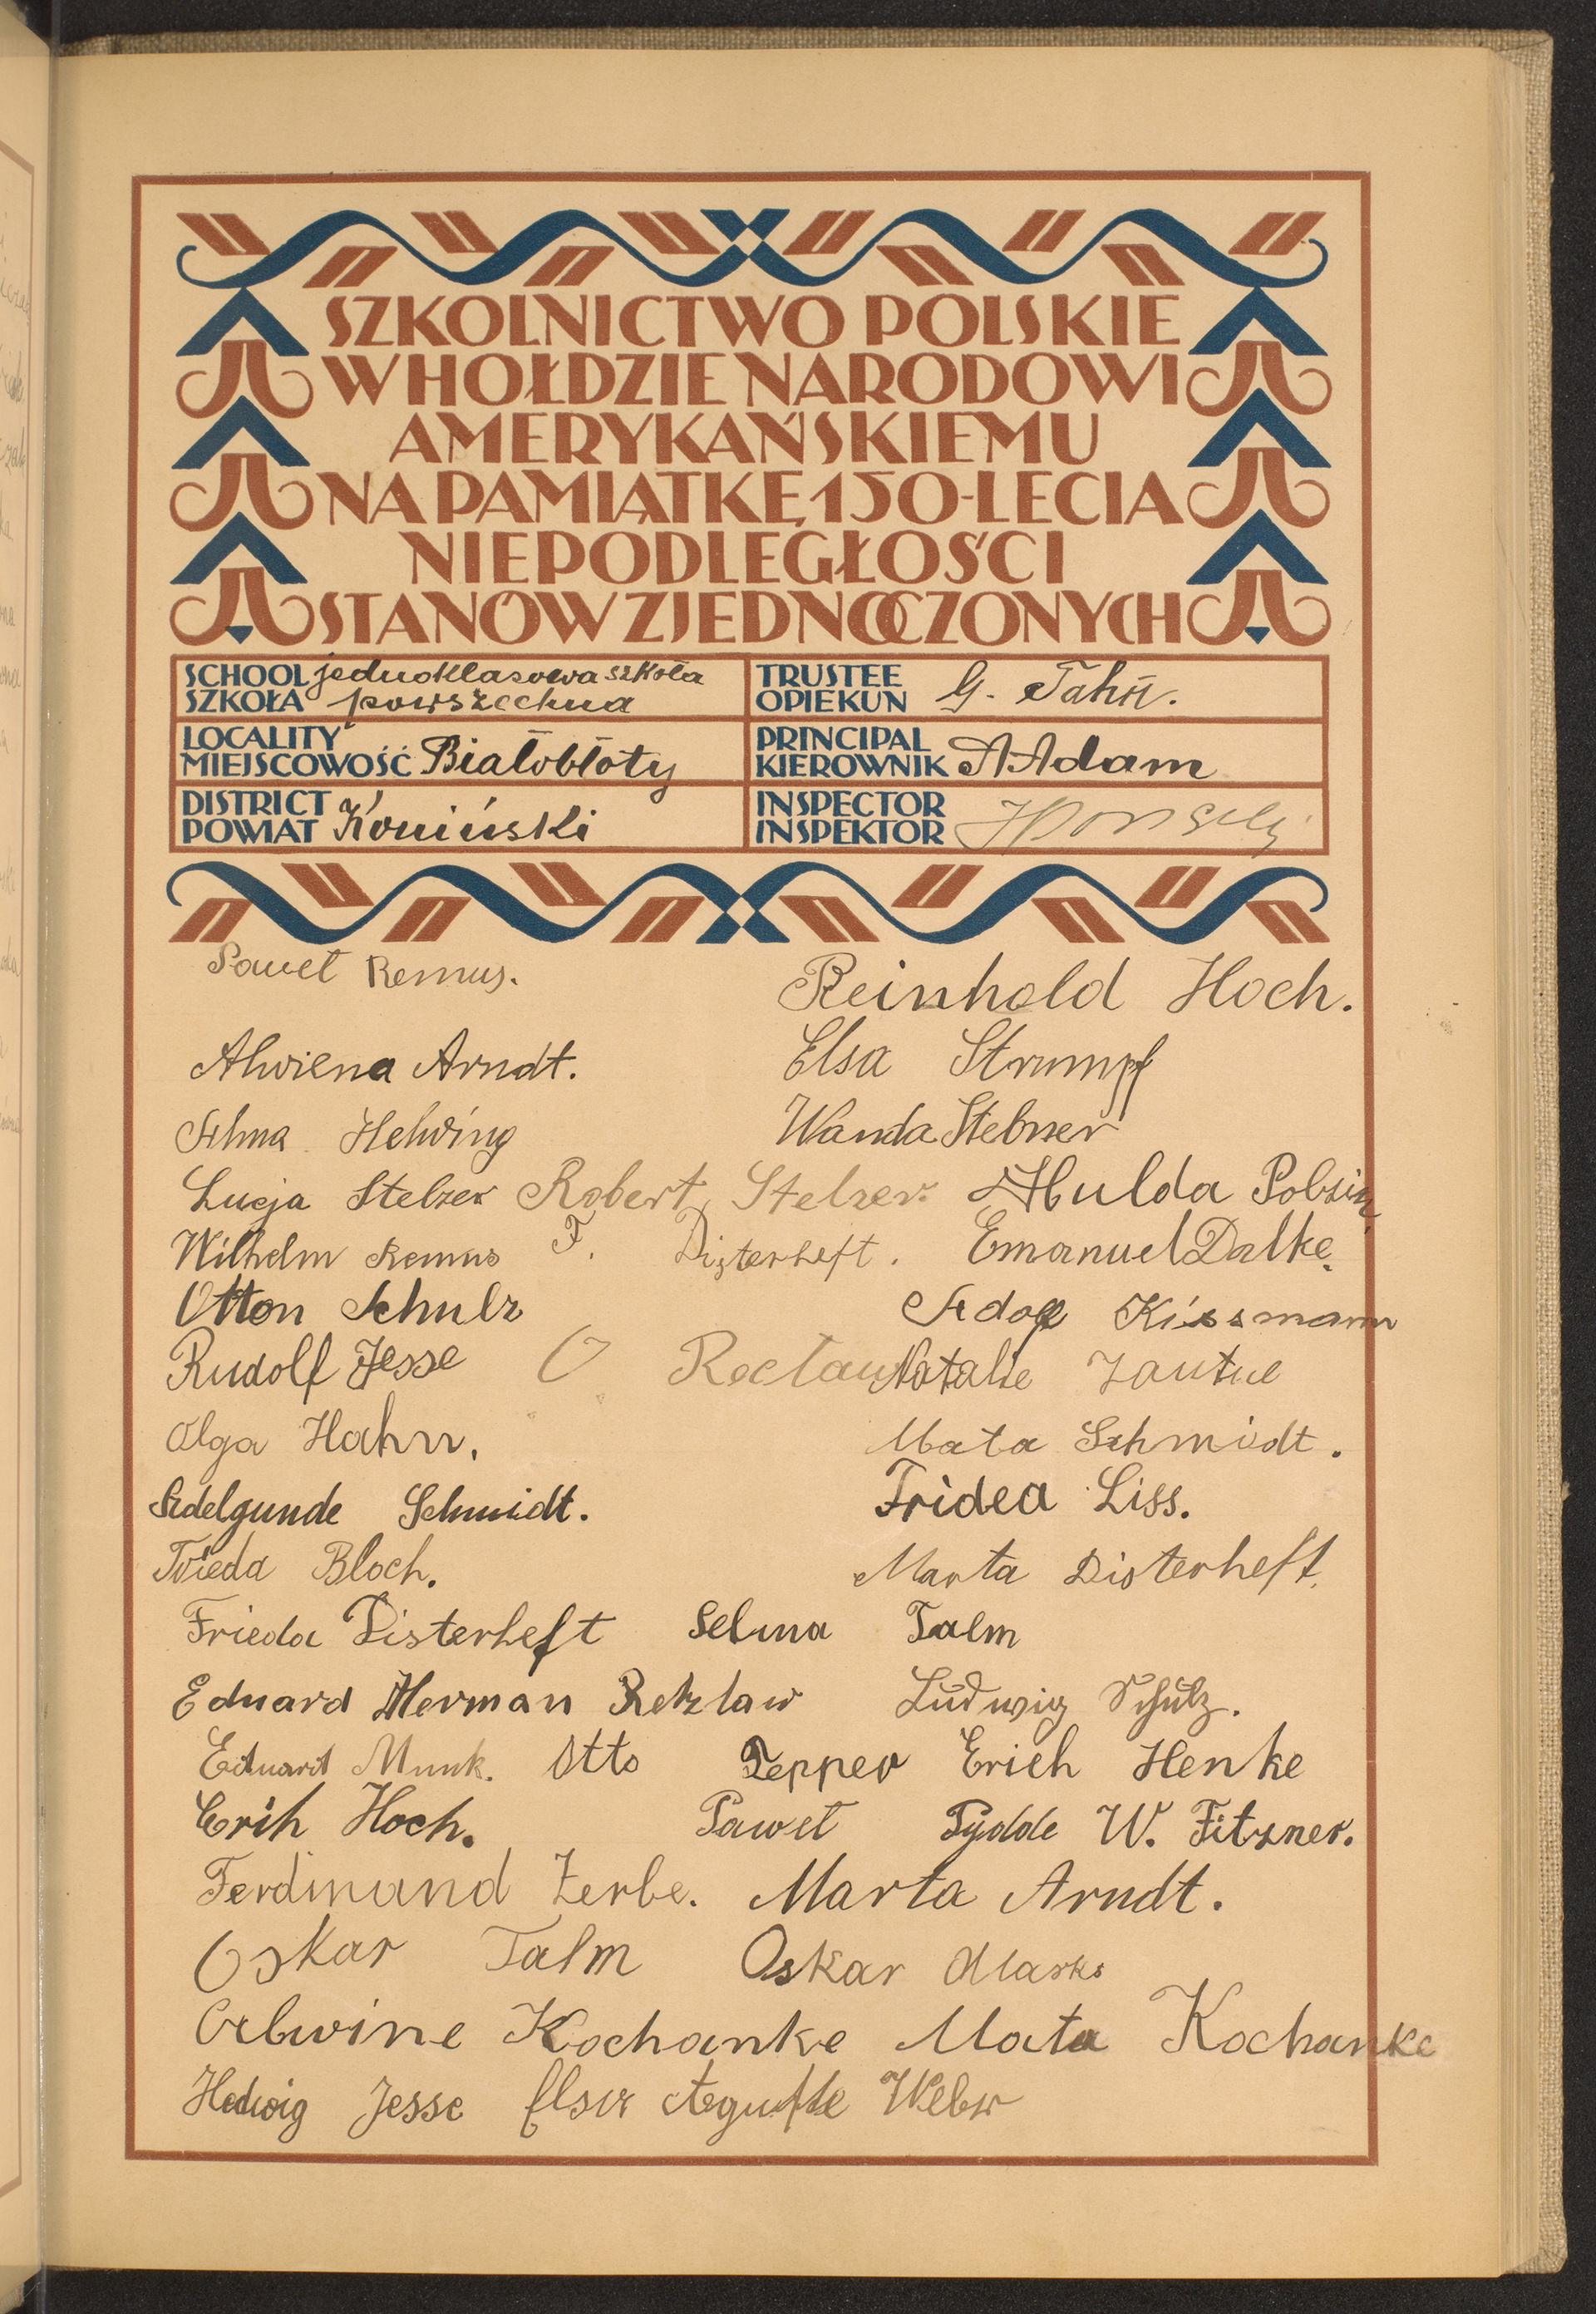 SZKOLNICTWO POLSKIE
W HOŁDZIE NARODOWI
AMERYKAŃSKIEMU
NA PAMIĄTKĘ 150-LECIA
NIEPODLEGŁOŚCI
STANÓW ZJEDNOCZONYCH
SCHOOL jednoklasowa szkoła
SZKOŁA powszechna
TRUSTEE
OPIEKUN G. Jahn.
LOCALITY
MIEJSCOWOŚĆ Białobłoty
PRINCIPAL
KIEROWNIK A Adam
DISTRICT
POWIAT Koniński
INSPECTOR
INSPEKTOR
Paweł Remus. Reinhold Hoch.
Alwiena Arndt. Elsa Strumpf
Alma Helwing Wanda Stebner
Lucja Stelzer Robert Stelzer. Hulda Polzin
Wilhelm Remus F. Disterheft. Emanuel Dalke.
Otton Schulz Adolf Kissmann
Rudolf Jesse O Reclau Natalie
Olga Hahn. Mata Schmidt.
Adelgunde Schmidt. Fridea Liss.
Frieda Bloch. Marta Disterheft.
Frieda Disterheft Selma Talm
Eduard Herman Retzlaw Ludwig Schulz.
Eduard Munk. Otto Tepper Erich Henke
Erih Hoch. Paweł Tydde W. Fitzner.
Ferdinand Zerbe. Marta Arndt.
Oskar Talm Oskar Marks
Arlwine Kochanke Mata Kochanke
Hedwig Jesse Weber